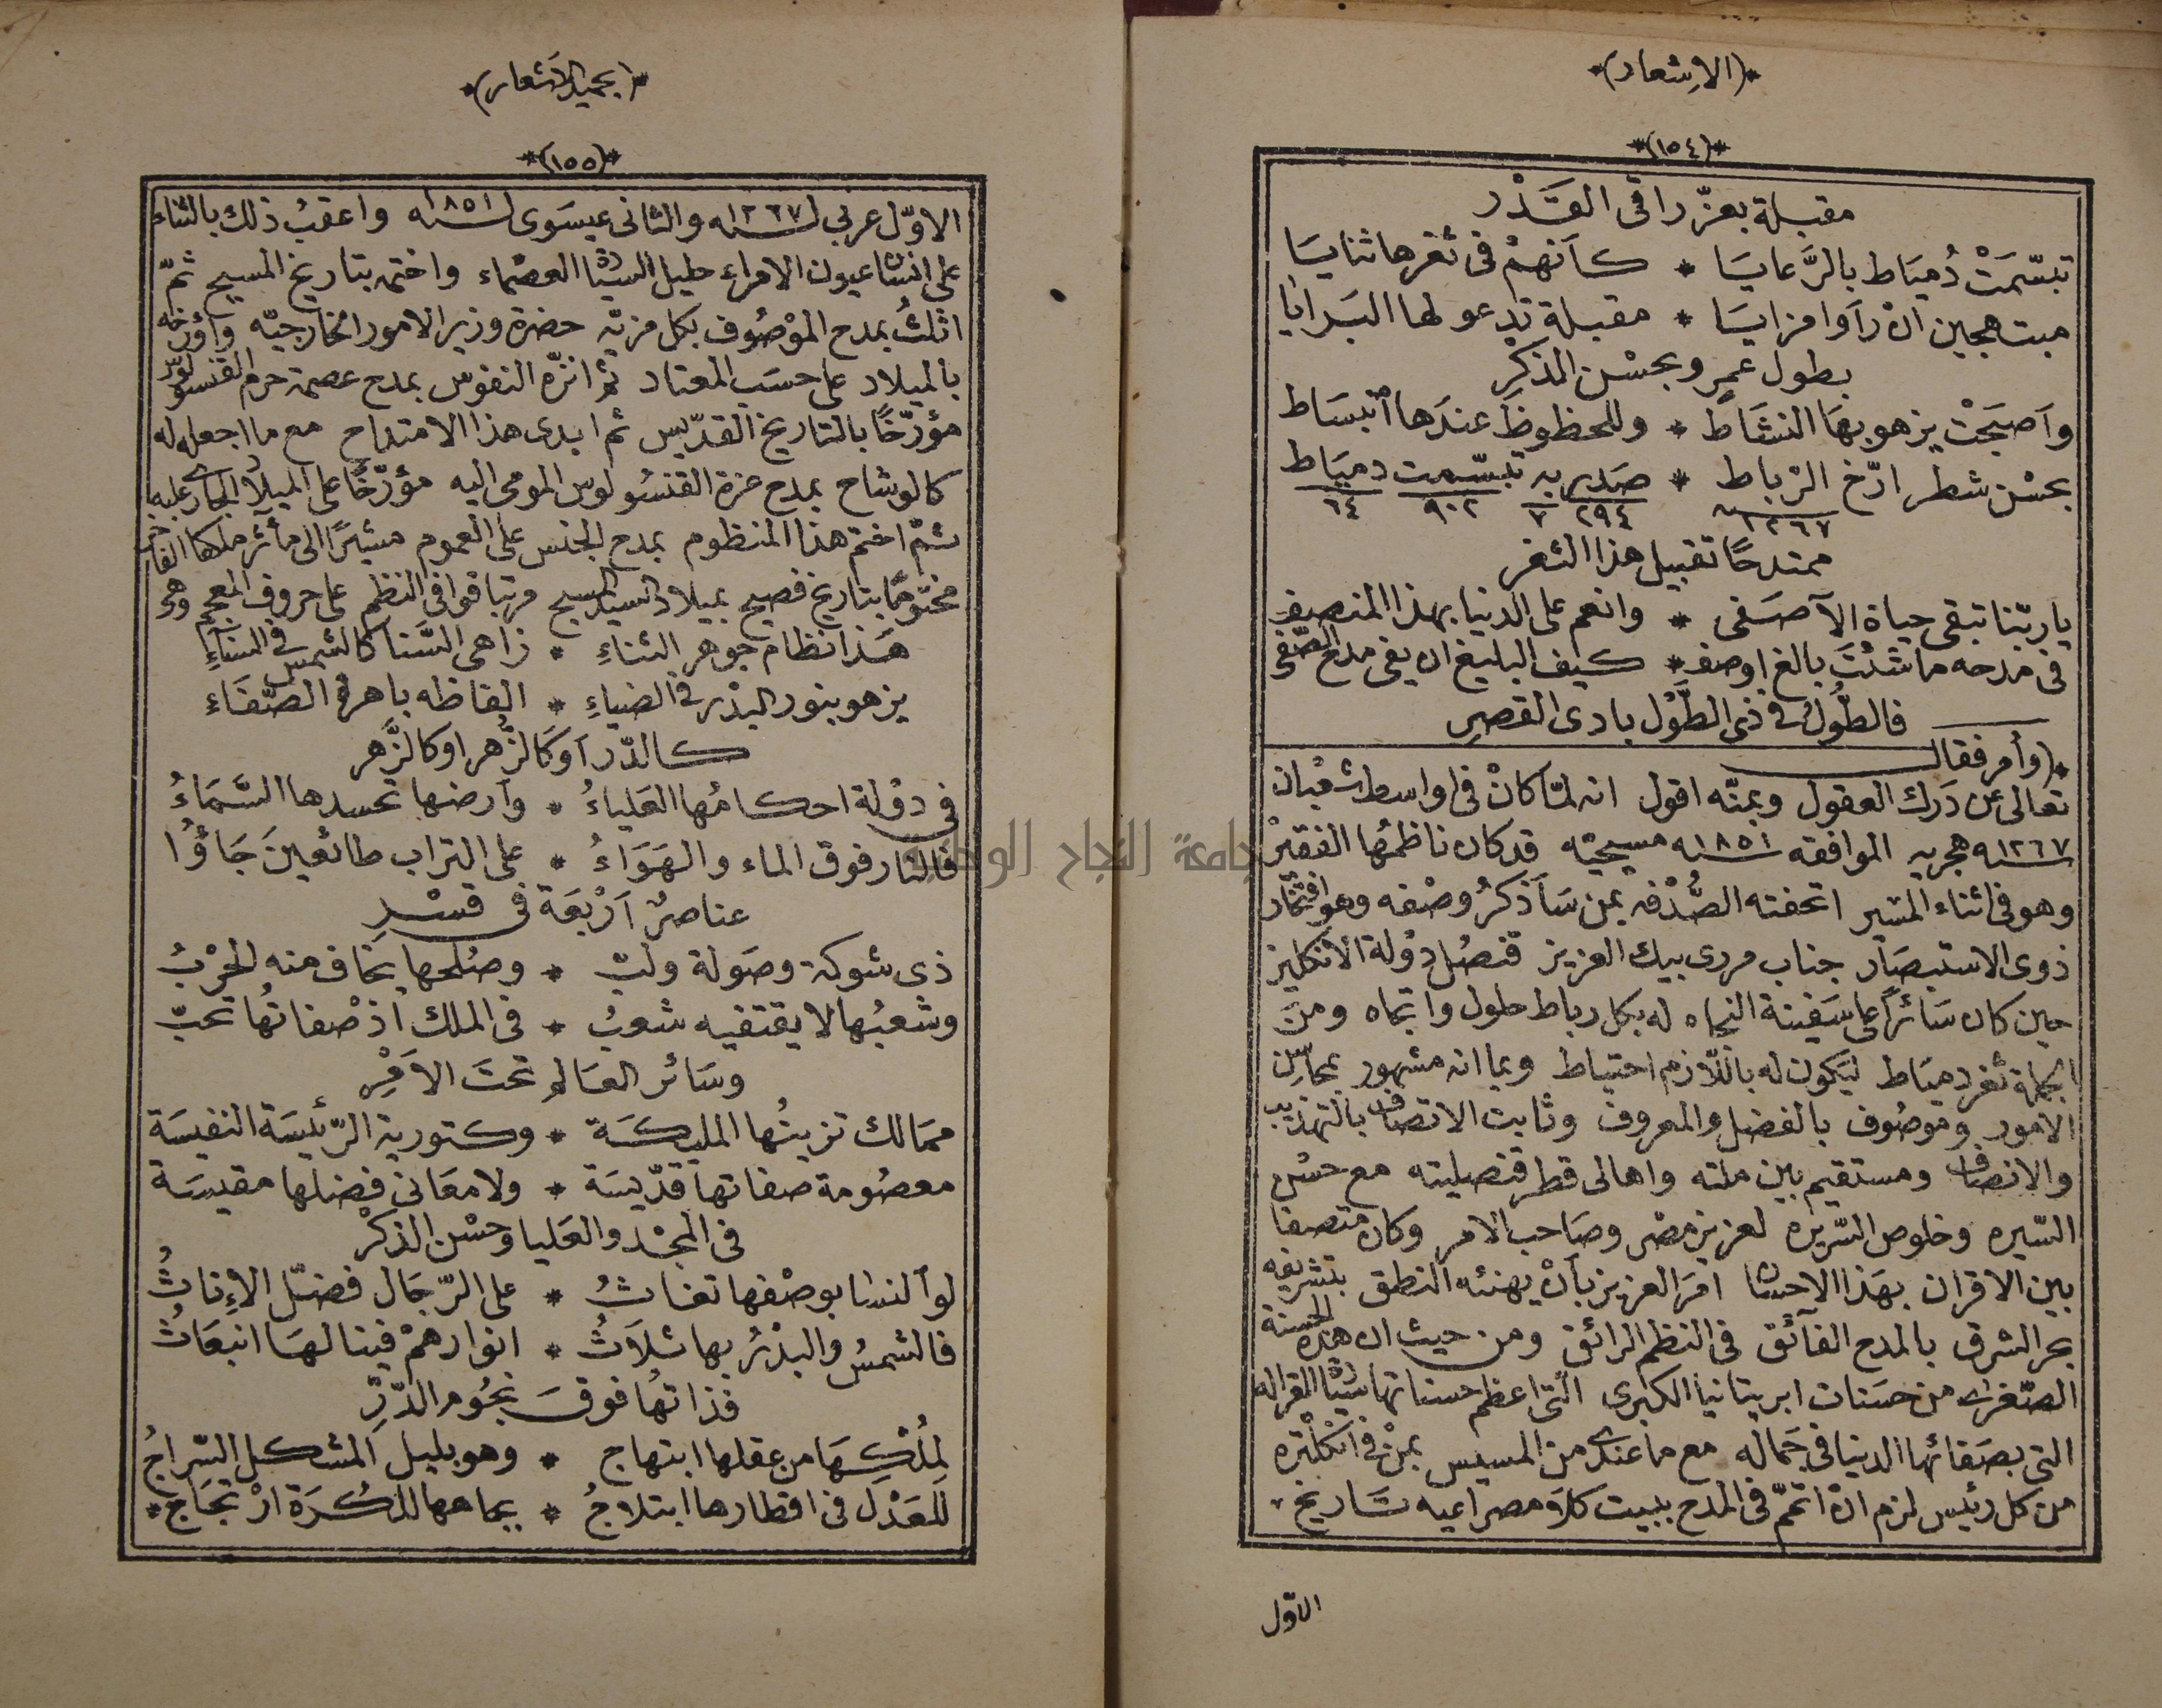 *(الاِشعار)*
*(١٥٤)*
مقبلة بعزّ راقى القَدْر
تبسّمَتْ دُميَاط بالرَّعايَا * كأنّهمْ فى ثغرها ثنايَا
مبتهجين انْ رَأوا مزايَا * مقبلة تدعو لها البَرايا
بطول عمرٍ وبحسْن الذكرِ
وَاَصبَحَتْ يزهو بهَا النشَاط * وللحظوظ عندَها انبسَاط
بحسْن شطر ارّخ الرّباط * صَدر به تبسّمت دميَاط
١٢٦٧ ٢٩٤ ٧ ٩٠٢ ٦٤
ممتدحًا تقبيل هذا الثغر
يا ربّنا تبقى حياة الآصَفى * وانعم على الدنيا بهذا المنصفِ
فى مدحه ما شئتَ بالغ اوصف * كيف البليغ ان يفى مدح الصّفى
فالطُّولُ فى ذى الطَّوْل بادى القصرِ
*(وأمر فقال
تعالى عن دَرك العقول وبمنّه اقول انه لمّا كانْ فى اواسط شعْبان
سنة ١٢٦٧ هجريه الموافقه سنة ١٨٥١ مسيحيّه قد كان ناظمُها الفقيرْ
وهو فى اثناء المسير اتحفته الصُّدْفه بمن سَأذكرُ وصْفه وهو افتخار
ذوى الاستبصَار جناب مردى بيك العزيز قنصُل دوْلة الانكليز
حين كان سَائرًا على سَفينة النجاه له بكل رباط حلول واتجاه ومن
الجملة ثغر دميَاط ليَكون له باللّازم احتياط وبما انه مشهور بمحاسِن
الامور وموصُوف بالفضل والمعروف وثابت الاتصَاف بالتهذيب
والانصَاف ومستقيم بين ملته واهالى قطر قنصليته مع حسْن
السّيره وخلوص السّريره لعزيز مصْر وصَاحب الامر وكان متصفا
بين الاقران بهَذا الاحسَان امَرَ العزيز بأنْ يهنئه النطق بتشريفه
بحر الشرق بالمدح الفآئق فى النظم الرائق ومن حيث ان هذه الحسنة
الصّغرى من حسَنات ابريتانيا الكبرى التى اعظم حسناتها سيّدة القراله
التى بصَفائها الدنيا فى جَماله مع ما عندى من المسيس بمنْ فى انكلتره
من كل رئيس لزم انْ اتمّ فى المدح ببيت كلا مصراعيه تَاريخ
الاوّل
*(بحميد الاَشعار)*
*(١٥٥)*
الاوّل عربي لسنة ١٢٦٧ والثانى عيسَوى لسنة ١٨٥١ واعقبُ ذلك بالثناء
على انسَان عيون الامراء حليل السيّدة العصْماء واختمه بتاريخ المسيح ثمّ
اثلثُ بمدح الموْصُوف بكل مزيّه حضرة وزير الامور الخارجيّه وأؤرخه
بالميلاد على حسَب المعتاد ثم انزّه النفوس بمدح عصمة حرم القنسولوس
مؤرّخًا بالتاريخ القدّيس ثم ابدى هذا الامتداح مع ما اجعله له
كالوشاح بمدح عزة القنسُولوس المومى اليه مؤرّخًا على الميلاد الجارى عليه
ثمّ اختم هذا المنظوم بمدح الجنس على العموم مشيرًا الى مآثر ملكها الفاخر
مختومًا بتاريخ فصيح بميلاد السيد المسيح مرتبا قوافى النظم على حروف المعجم وهى
هَذا نظام جوهر الثناءِ * زاهى السَّنا كالشمس فى السَّناءِ
يزهو بنور البدْر فى الضياءِ * الفاظه باهرة الصَّفَاء
كالدّر اَو كَالزُّهر او كالزَّهر
فى دوْلة احكامُها العَلياءُ * وأرضها تحسدها السَّمَاءُ
فالنار فوق الماء والهَوَاءُ * على التراب طائعينَ جَاؤُا
عناصرٌ اَرْبعَة فى قسْرِ
ذى شوكة وصَولة ولبّ * وصُلحها يخاف منه الحَرْبُ
وشعبُها لا يقتفيه شعبُ * فى الملك اذْ صْفاتُها تحبّ
وسَائر العَالمِ تحتَ الاَمْرِ
ممَالك تزينُها المليكَة * وكتورية الرّئيسَة النفيسَة
معصُومة صفاتها قدّيسَة * ولا معَانى فضلها مقيسَة
فى المجْد والعَليا وحسْن الذكرْ
لو النسَا بوصْفها تغاثُ * على الرّجَال فضّل الاِناثُ
فالشمسُ والبدْرُ بها ثلاَثُ * انوارهمْ فينا لهَا انبعَاثُ
فذاتهُا فوقَ نجُوم الدّرِّ
لِمُلْكِهَا من عقلها ابتهاج * وهو بليل المشكل السّراجُ
للعَدْل فى اقطارها ابتلاجُ * بجاهها للكُرَة ارْتجَاجُ *